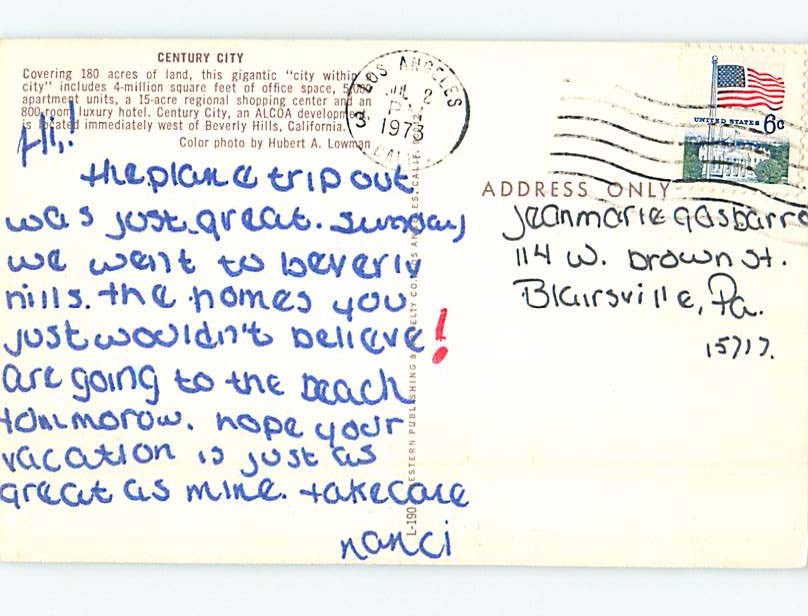 CENTURY CITY
Covering 180 acres of land, this gigantic "city within
city" includes 4-million square feet of office space, 5,000
apartment units, a 15-acre regional shopping center and an
800-room luxury hotel. Century City, an ALCOA development,
is located immediately west of Beverly Hills, California.
Color photo by Hubert A. Lowman
LOS ANGELES
2
PM
1973
UNITED STATES 6c
Hi!
the plane trip out
was just great. Sunday
we went to beverly
hills. the homes you
just wouldn't believe!
are going to the beach
tommorow. hope your
vacation is just as
great as mine. take care
nanci
L-190
ADDRESS ONLY
Jeanmarie Gasbarre
114 W. brown st.
Blairsville, Pa.
15717.